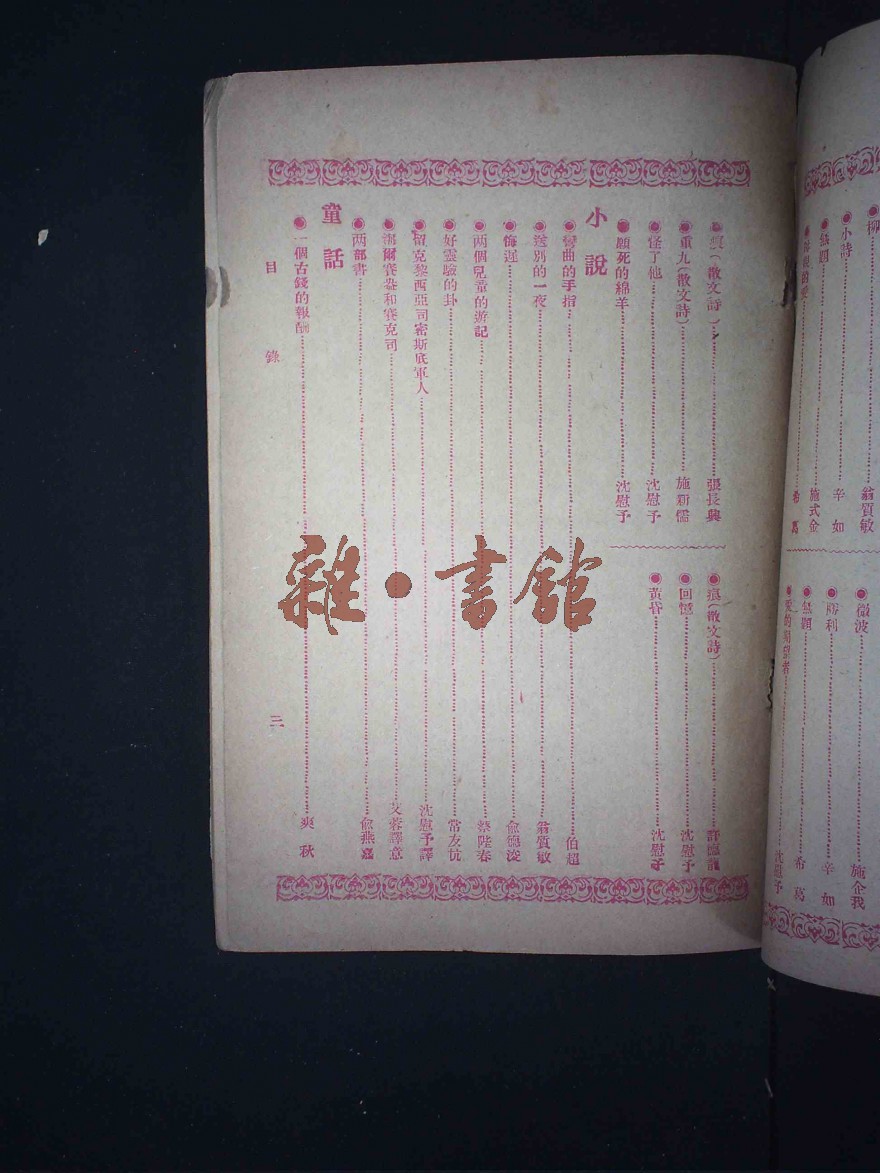 柳
翁質敏
小詩
辛如
無題
施式金
母親的愛
希葛
微波
施企我
勝利
辛如
無題
希葛
愛的期望者
沈慰予
痕(散文詩)
張長興
重九(散文詩)
施新儒
怪了他
沈慰予
願死的綿羊
沈慰予
痕(散文詩)
許德
回憶
沈慰予
黃昏
沈慰予
小說
彎曲的手指
伯超
送別的一夜
翁質敏
悔遲
俞德浚
两個兒童的遊記
蔡陞春
好靈驗的卦
常友抗
留克黎西亞司密斯底軍人
沈慰予譯
爾賽森和賽克司
艾蓉譯意
两部書
俞燕嘉
童話
一個古錢的報酬
爽秋
目錄
三
雜·書館